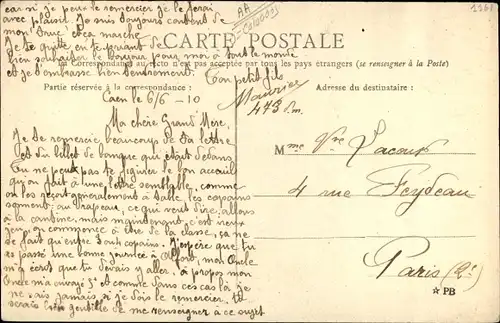 car si je peux le remercier je le ferai
avec plaisir. Je suis toujours content de
mon truc et ça marche
Je te quitte en te priant de
bien souhaiter le bonjour pour moi à tout le monde
et je t'embrasse bien tendrement. Ton petit fils
Maurice
473 Pm.
CARTE POSTALE
La Correspondance au recto n'est pas acceptée par tous les pays étrangers (se renseigner à la Poste)
Partie réservée à la correspondance :
Adresse du destinataire :
Caen le 6/6 - 10
Ma chère Grand'Mère,
Je te remercie beaucoup de ta lettre
et du billet de banque qui était dedans
Tu ne peux pas te figurer le bon accueil
qu'on fait à une lettre semblable, comme
on les reçoit généralement à table, les copains
au drapeau, ce qui veut dire allons
à la cantine, mais maintenant c'est
on commence à être de la classe, ça ne
se fait qu'entre copains. J'espère que tu
as passé une bonne journée à Alfort, mon Oncle
m'a écrit que tu devais y aller, à propos mon
Oncle m'a envoyé 5f et comme dans ces cas là je
ne sais jamais si je dois le remercier, tu
serais bien gentille de me renseigner à ce sujet
Mme Vve Lacour
4 rue Feydeau
Paris (2e)
PB